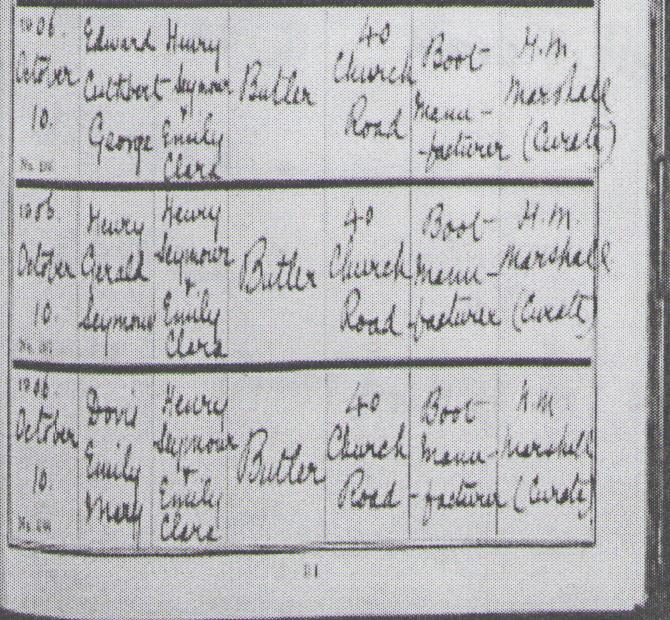 1906.
October
10.
Edward
Cuthbert
George
Henry
Seymour
+
Emily
Clara
Butler
40
Church
Road
Boot
Manu-
-facturer
H.M.
Marshall
(Curate)
1906.
October
10.
Henry
Gerald
Seymour
Henry
Seymour
+
Emily
Clara
Butler
40
Church
Road
Boot
Manu-
-facturer
H.M.
Marshall
(Curate)
1906
October
10.
Doris
Emily
Mary
Henry
Seymour
+
Emily
Clara
Butler
40
Church
Road
Boot
Manu-
-facturer
H.M.
Marshall
(Curate)